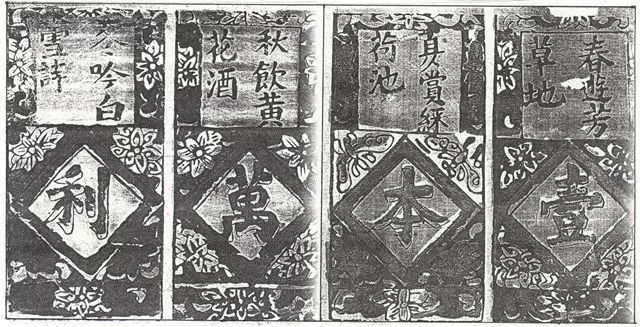 春遊芳
草地
夏賞綠
荷池
秋飲黃
花酒
冬吟白
雪詩
壹本萬利